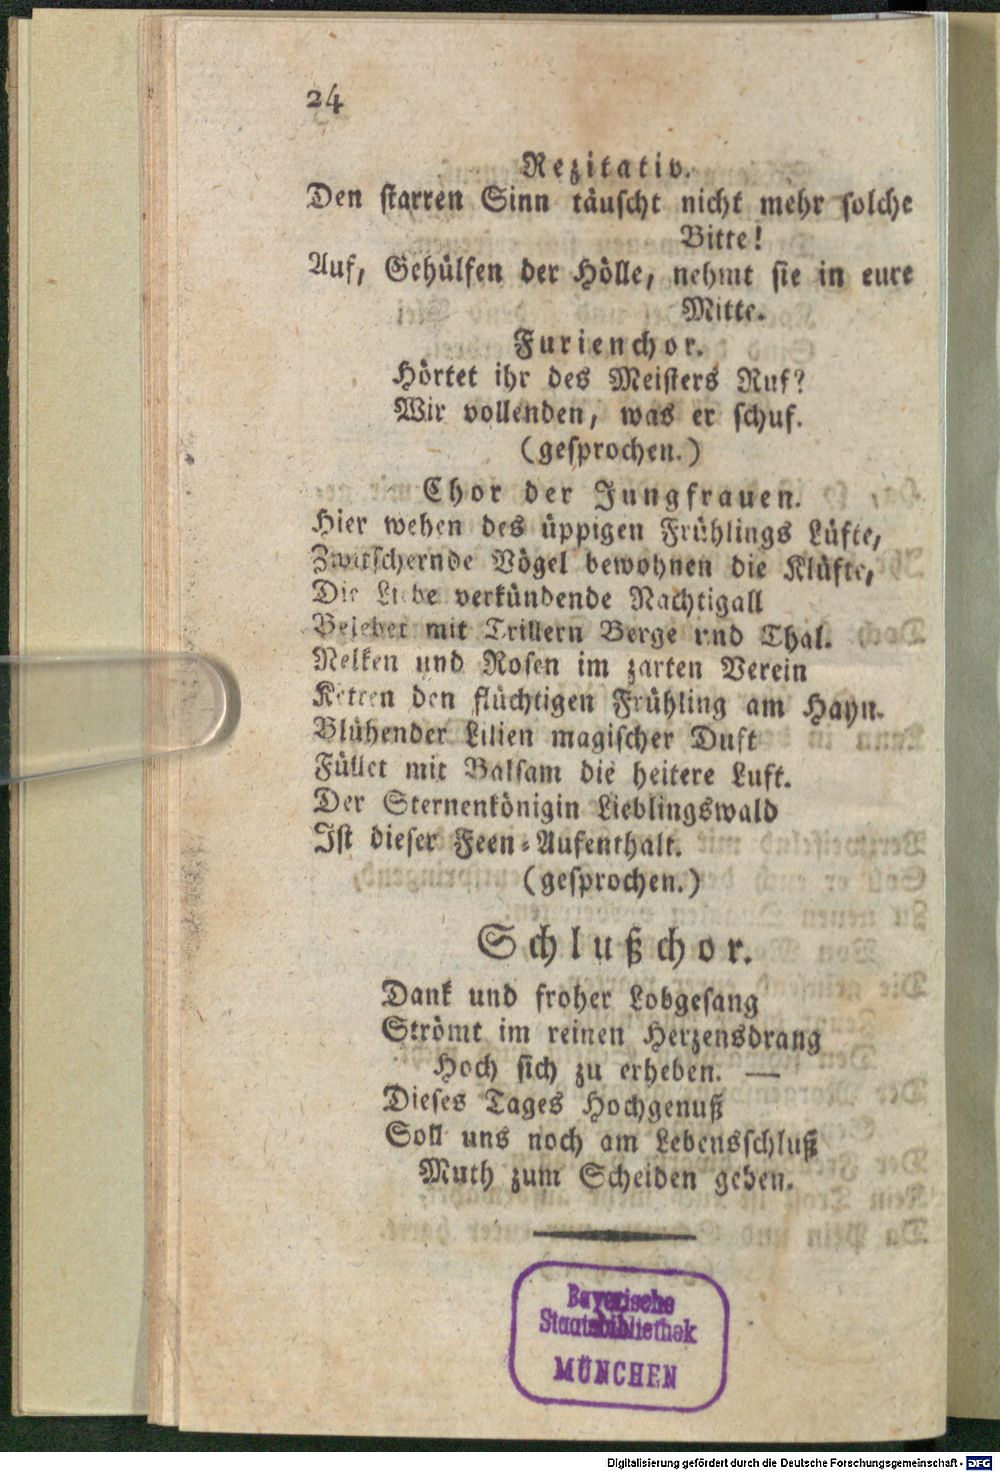 24
Rezitativ.
Den starren Sinn täuscht nicht mehr solche
Bitte!
Auf, Gehülfen der Hölle, nehmt sie in eure
Mitte.
Furienchor.
Hörtet ihr des Meisters Ruf?
Wir vollenden, was er schuf.
(gesprochen.)
Chor der Jungfrauen.
Hier wehen des üppigen Frühlings Lüfte,
Zwitschernde Vögel bewohnen die Klüfte,
Die Liebe verkündende Nachtigall
Belebet mit Trillern Berge und Thal.
Nelken und Rosen im zarten Verein
Ketten den flüchtigen Frühling am Hayn.
Blühender Lilien magischer Duft
Füllet mit Balsam die heitere Luft.
Der Sternenkönigin Lieblingswald
Ist dieser Feen-Aufenthalt.
(gesprochen.)
Schlußchor.
Dank und froher Lobgesang
Strömt im reinen Herzensdrang
Hoch sich zu erheben. —
Dieses Tages Hochgenuß
Soll uns noch am Lebensschluß
Muth zum Scheiden geben.
Bayerische
Staatsbibliothek
MÜNCHEN
Digitalisierung gefördert durch die Deutsche Forschungsgemeinschaft - DFG